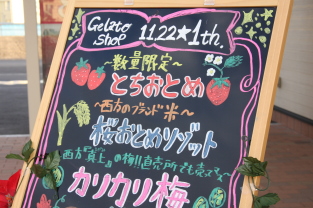 Gelato Shop 11.22★1th.
～数量限定～
とちおとめ
～西方のブランド米～
桜おとめリゾット
西方"真上"の梅!!直売所でも売ってる～
カリカリ梅